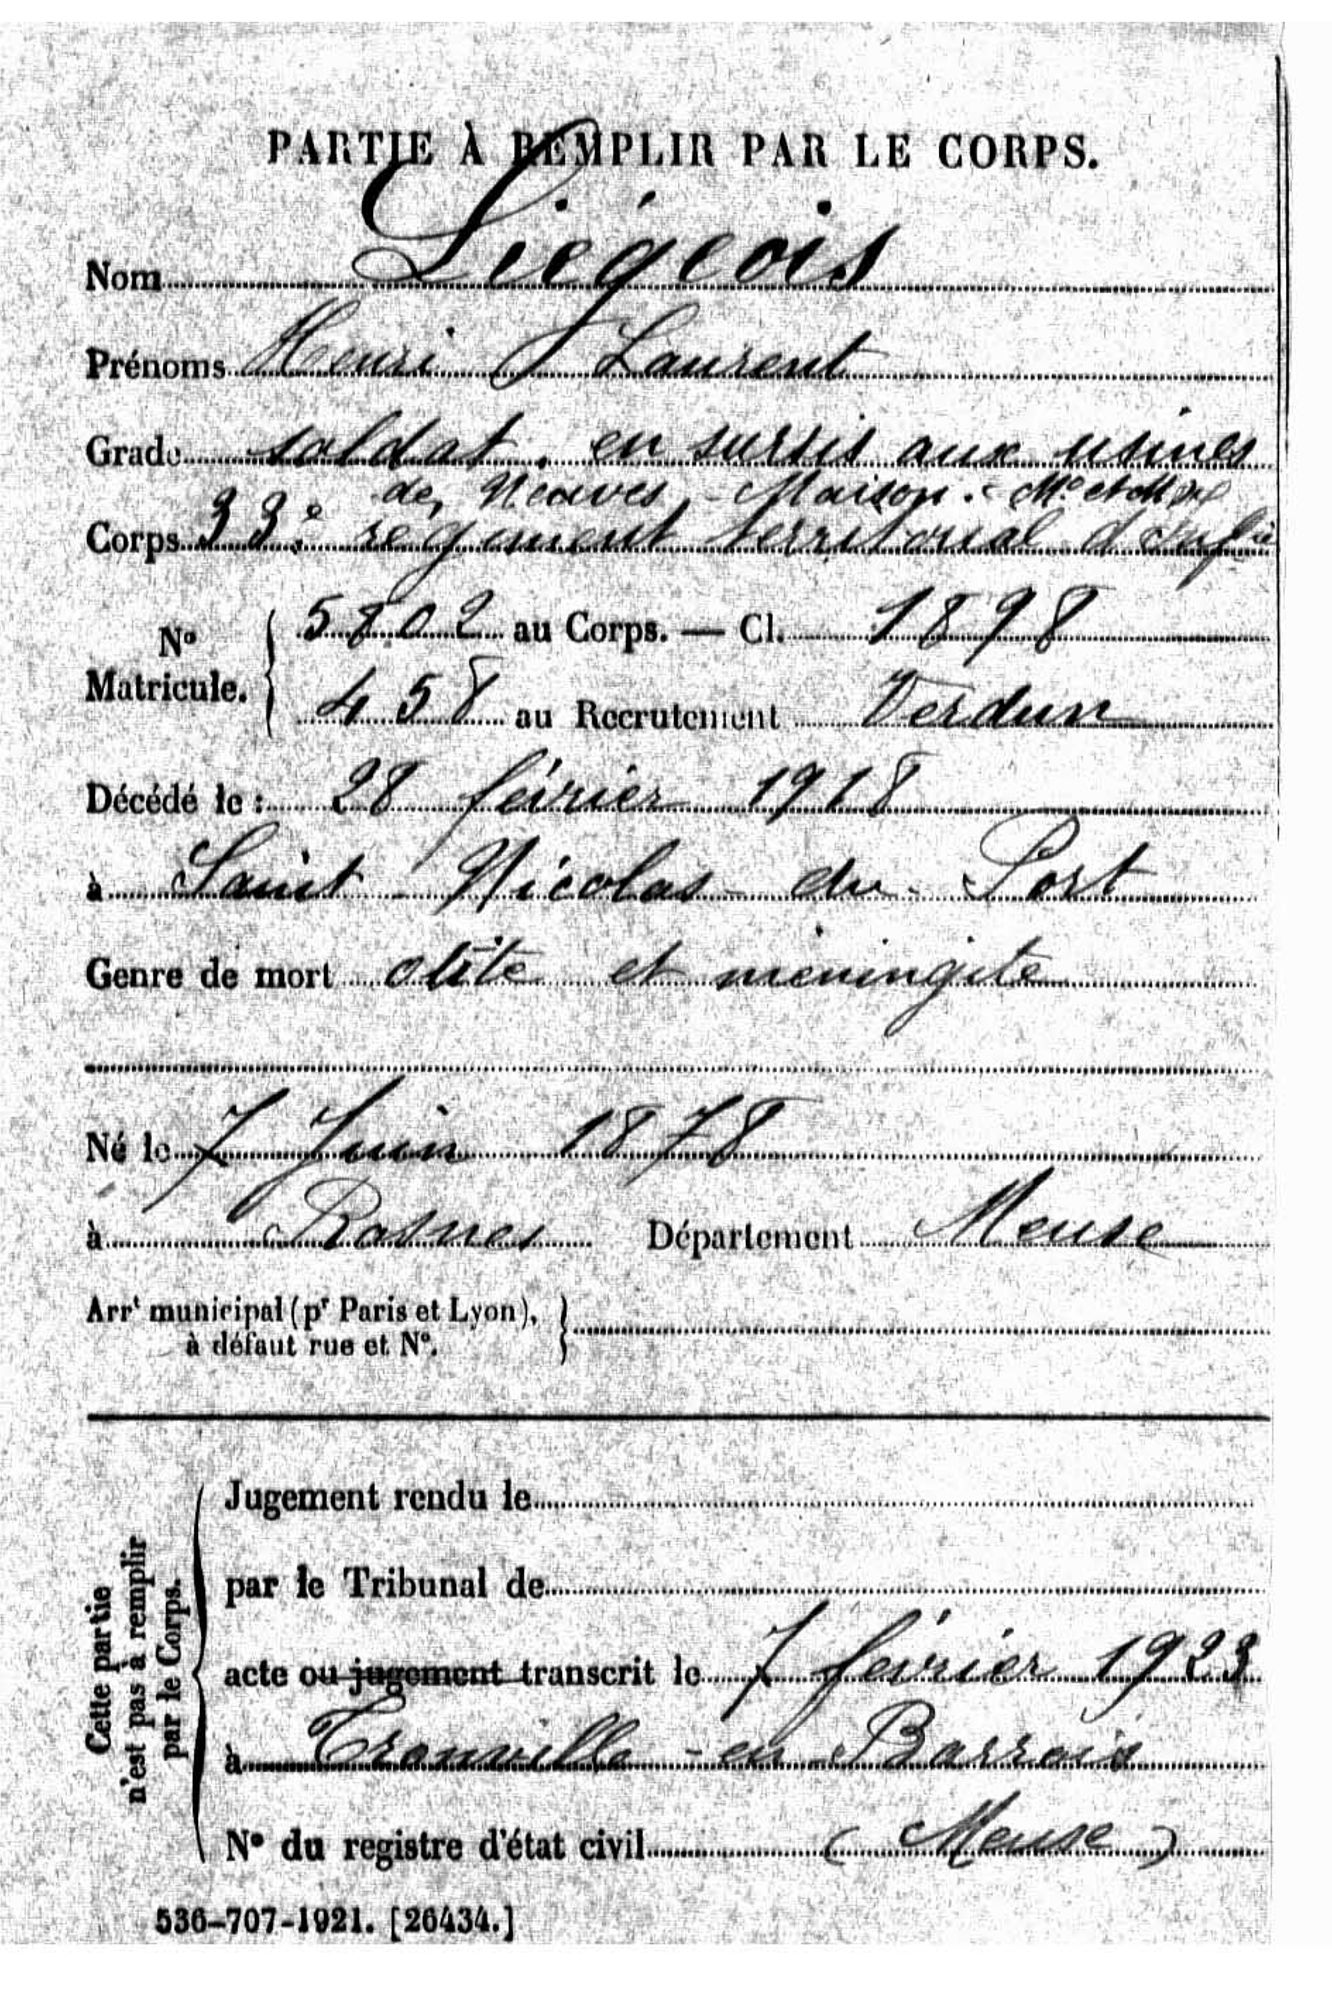 PARTIE À REMPLIR PAR LE CORPS.
Nom Liégeois
Prénoms Henri Laurent
Grade soldat, en sursis aux usines
de Neuves-Maison. Mthe et Mlle
Corps 33e régiment territorial d'Infie
No Matricule. { 5802 au Corps. — Cl. 1898
458 au Recrutement Verdun
Décédé le : 28 février 1918
à Saint-Nicolas-du-Port
Genre de mort otite et méningite
Né le 7 Juin 1878
à Département Meuse
Arrt municipal (pr Paris et Lyon),
à défaut rue et N°.
Cette partie
n'est pas à remplir
par le Corps.
Jugement rendu le
par le Tribunal de
acte ou jugement transcrit le 7 février 1923
à Tronville-en-Barrois
N° du registre d'état civil (Meuse)
536-707-1921. [26434.]